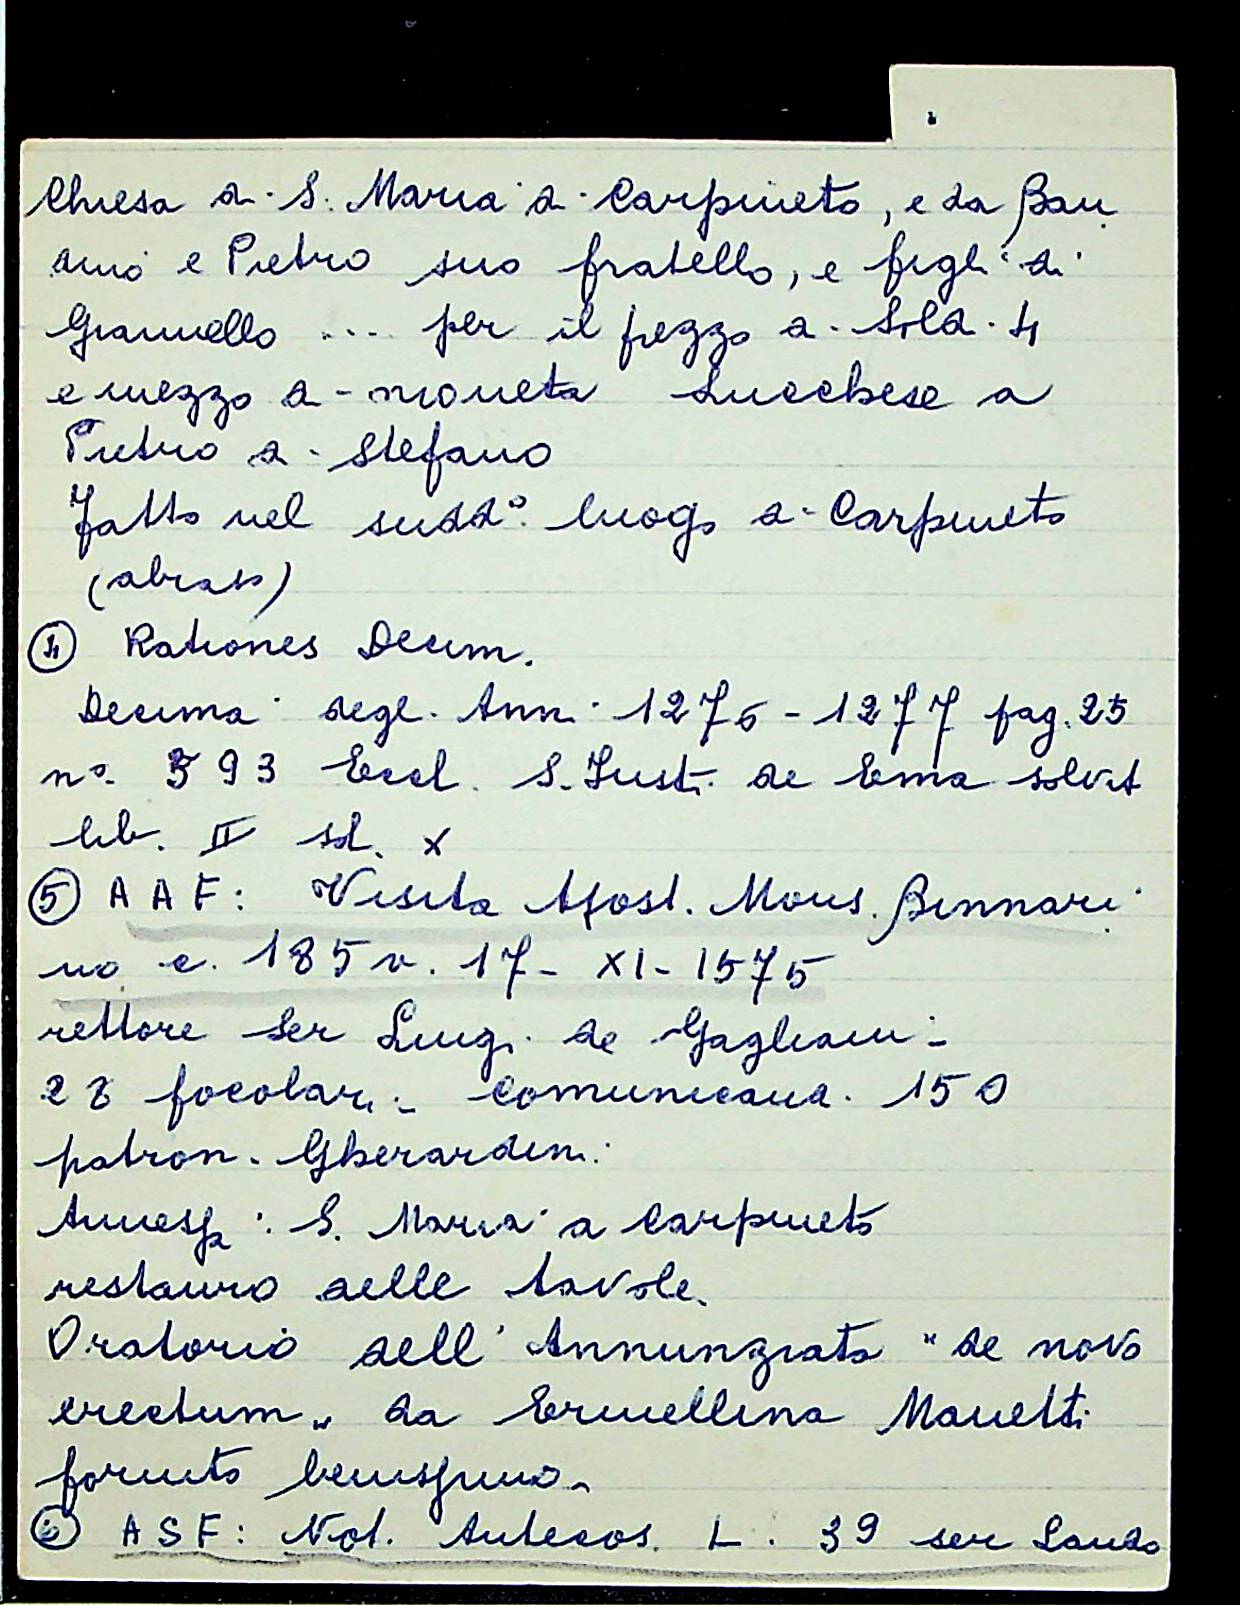 Chiesa di S. Maria a Carpineto, e da Ban
dino e Pietro suo fratello, e figli di
Giannello .... per il pezzo di Soldi 4
e mezzo di moneta Lucchese a
Pietro di Stefano
Fatto nel sudd° luogo di Carpineto
(abraso)
④ Rationes Decim.
Decima degli Anni 1276-1277 pag. 25
n° 593 Eccl. S. Justi de Ema solvit
lib. II sol. X
⑤ AAF: Visita Apost. Mons. Binnari
no c. 185v. 17-XI-1575
rettore ser Luigi de Gagliani-
28 focolari - comunicandi 150
patroni Gherardini
Annessa: S. Maria a Carpineto
restauro delle tavole.
Oratorio dell'Annunziata "de novo
erectum" da Ermellina Manetti
fornito benissimo-
⑥ ASF: Not. Antecos. L. 39 ser Lando